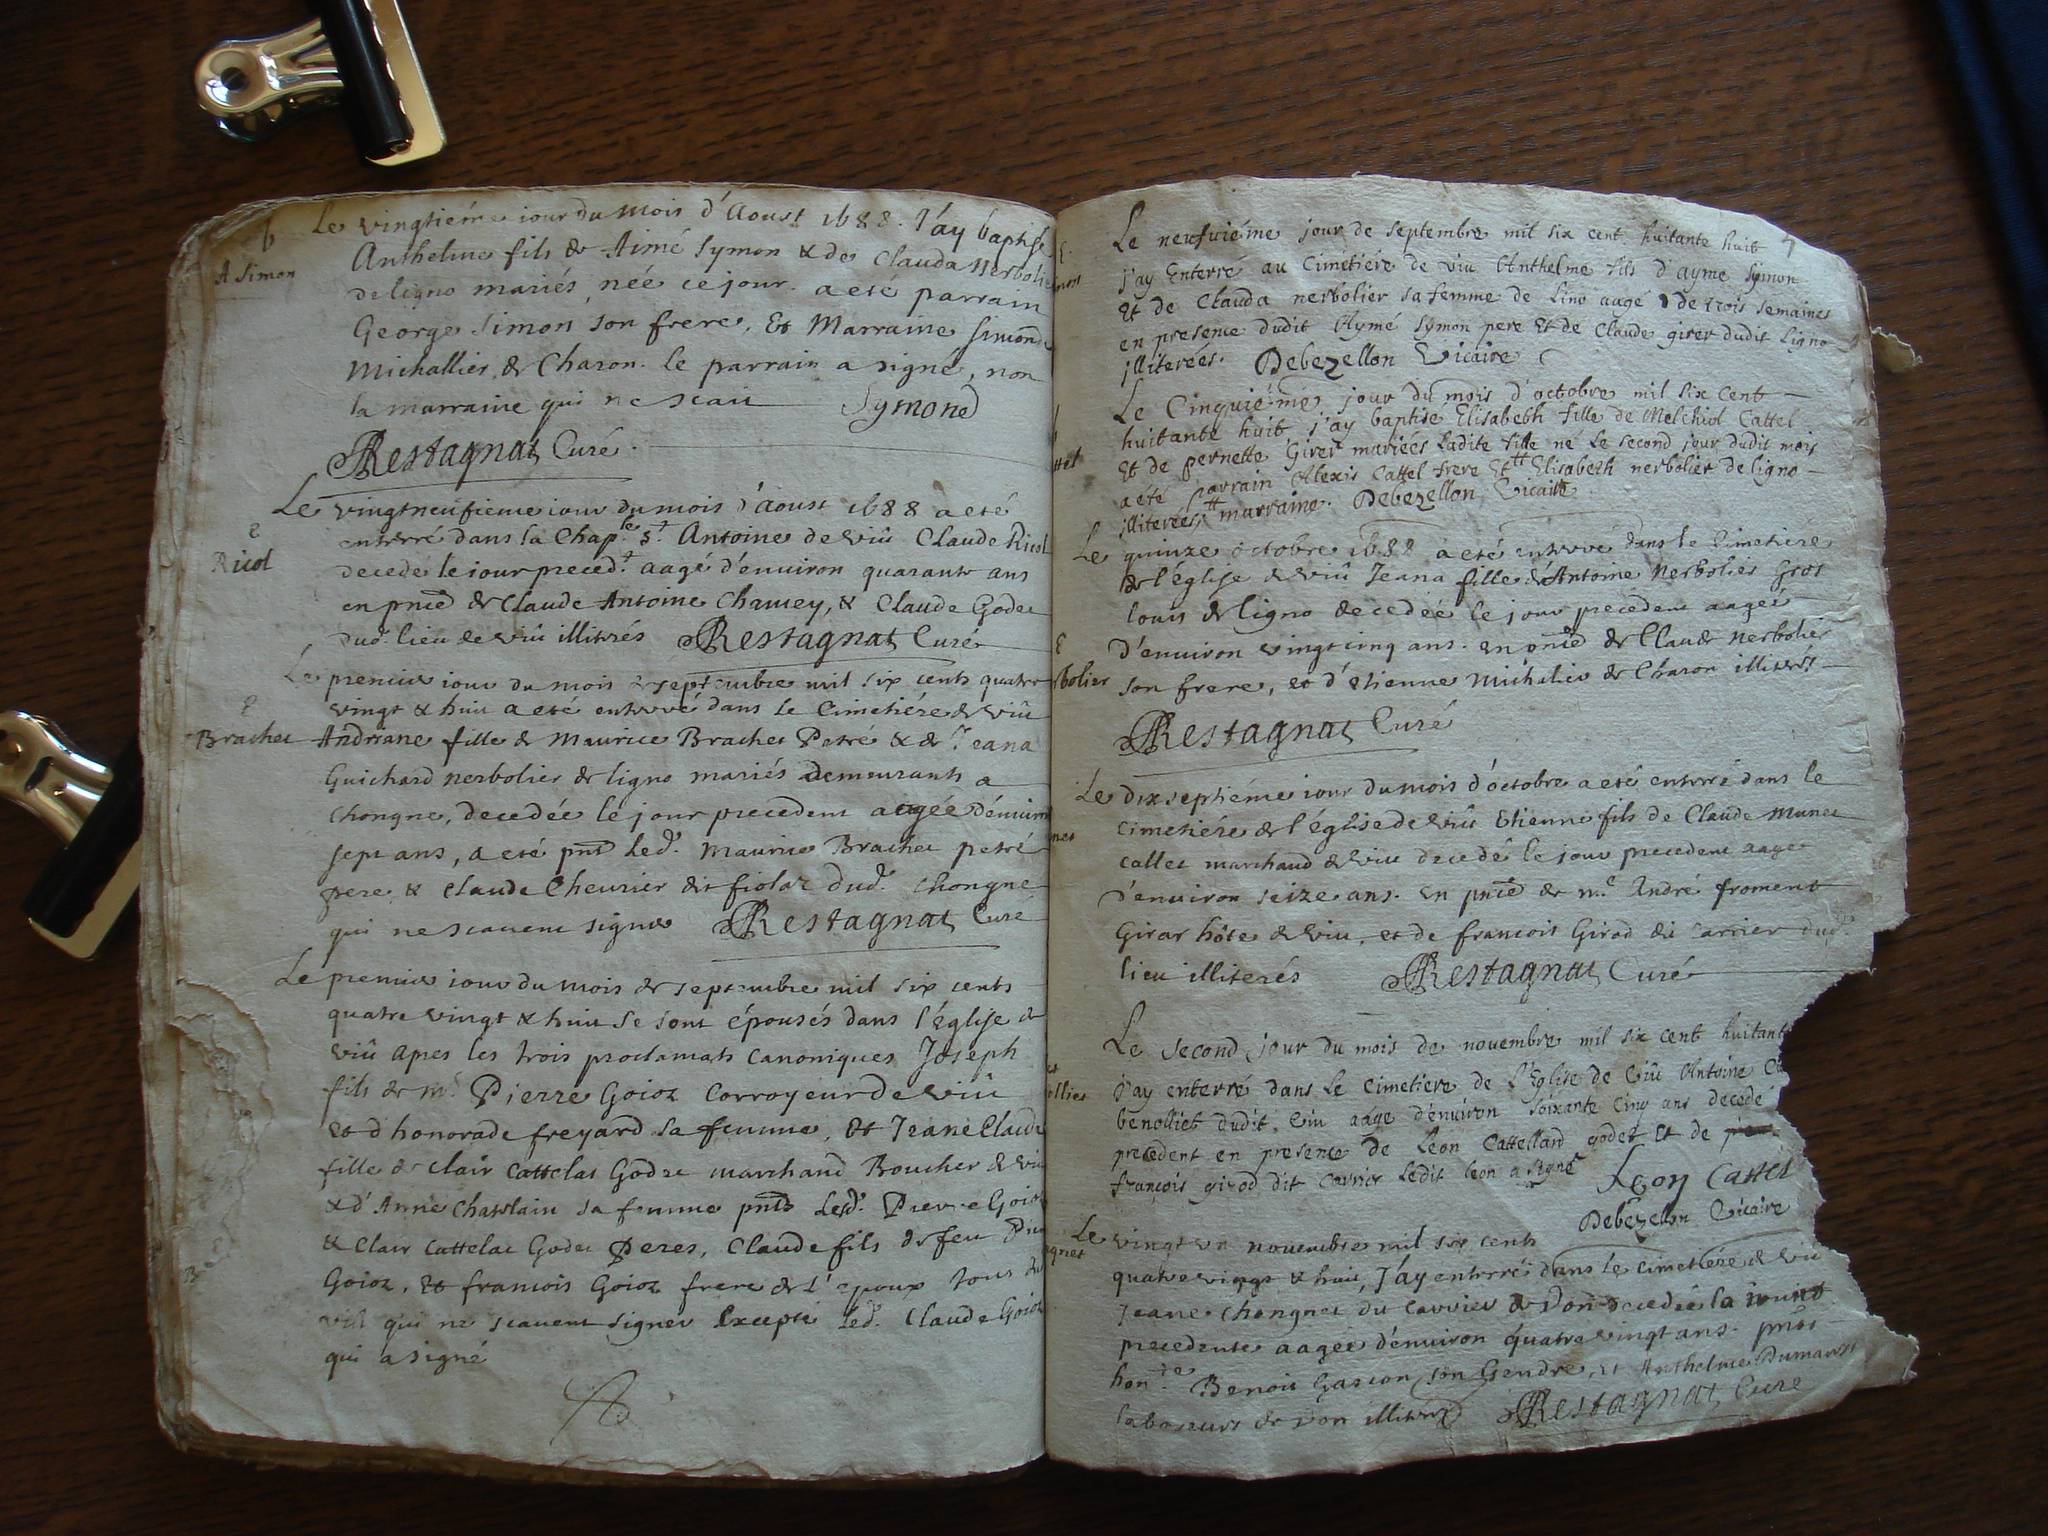 b Le vingtiéme iour du mois d'Aoust 1688. J'ay baptisé
A Simon
Anthelme fils de Aimé Symon & de Clauda Nerbolie
de ligno mariés, née ce jour. a eté parrain
George Simon son frere, Et Marraine Simond
Michallier de Charon. le parrain a signé, non
la marraine qui ne scait Symond
Restagnat Curé.
Le vingtneufieme iour du mois d'aoust 1688 a eté
E
Ricol
enterré dans la Chap.le s.t Antoine de viû Claude Ricol
decede le iour preced.t aagé d'enuiron quarante ans
en pnce de Claude Antoine Chamey, & Claude Godet
dud. lieu de viû illitrés Restagnat Curé
Le premier iour du mois septembre mil six cents quatre
E
Brachet
vingt & huit a eté enterré dans le Cimetiére de viû
Andriane fille de Maurice Brachet Petré & de Jeana
Guichard nerbolier de ligno mariés demeurants a
Chongne, decedée le jour precedent aagée d'enuiron
sept ans, a eté pnt led. Maurice Brachet petré
pere & Claude Cheurier dit fiolaz dud. Chongne
qui ne scauent signer Restagnat Curé
Le premier iour du mois de septembre mil six cents
quatre vingt & huit se sont épousés dans l'église de
viû apres les trois proclamats canoniques Joseph
fils de m. Pierre Goioz Corroyeur de viû
Et d honorade freyard sa femme, Et Jeane Claude
fille de Clair Cattelat Godet marchand Boucher de viû
& d'Anne Chastelain sa femme pnts Lesd. Pierre Goioz
& Clair Cattelat Godet Peres, Claude fils de feu
Goioz, Et francois Goioz frere de l'epoux tous
viû qui ne scauent signer Excepté led. Claude Goioz
qui a signé
Le neufuiéme jour de septembre mil six cent huitante huit 7
j'ay Enterré au Cimetiere de viu Anthelme fils d'ayme symon
Et de Clauda nerbolier sa femme de Lino aagé de trois semaines
en presence dudit Aymé Symon pere Et de Claude girer dudit Ligno
jlliterées. Debezellon Vicaire
Le Cinquiéme jour du mois d'octobre mil six cent
huitante huit j'ay baptise Elisabeth fille de Melchiol Cattel
Et de pernette Girer mariées Ladite fille ne Le second jour dudit mois
a eté parrain Alexis Cattel frere Et Elisabeth nerbolier de ligno
jlliterées marraine. Debezellon Vicaire
Le quinze octobre 1688 a eté enterré dans le Cimetiére
de l'église de viû Jeana fille d'Antoine Nerbolier Gros
louis de ligno decedée le jour precedent aagée
d'enuiron vingt cinq ans. en pnce de Claude nerbolier
rbolier
son frere, et d'etienne Michalier de Charon illitrés
Restagnat Curé
Le dix septiéme iour du mois d'octobre a eté enterré dans le
Cimetiére de l'église de viû Etienne fils de Claude Munet
callet marchand de viu decedé le jour precedent aagé
d'enuiron seize ans. En pnce de m. André froment
Girar hôte de viu, et de francois Girod dit Carrier dud.
lieu illiterés Restagnat Curé
Le second jour du mois de novembre mil six cent huitant
j'ay enterré dans Le Cimetiere de L'Eglise de viû Antoine
benolliet dudit viu aage d'enuiron soixante cinq ans decedé
precedent en presence de Leon Cattellard godet Et de
françois girod dit Carrier Ledit Leon a signé Leon Cattel
Debezellon Vicaire
Le vingt vn novembre mil six cents
quatre vingt & huit, J'ay enterrée dans le Cimetiére de viu
Jeane Chongnet du Carrier de Don decedée la nuit
precedente aagée d'enuiron quatre vingt ans. pnts
hon.te Benoit Gascon son Gendre, et Anthelme Dumarest
laboreurs de Don illitrés Restagnat Curé